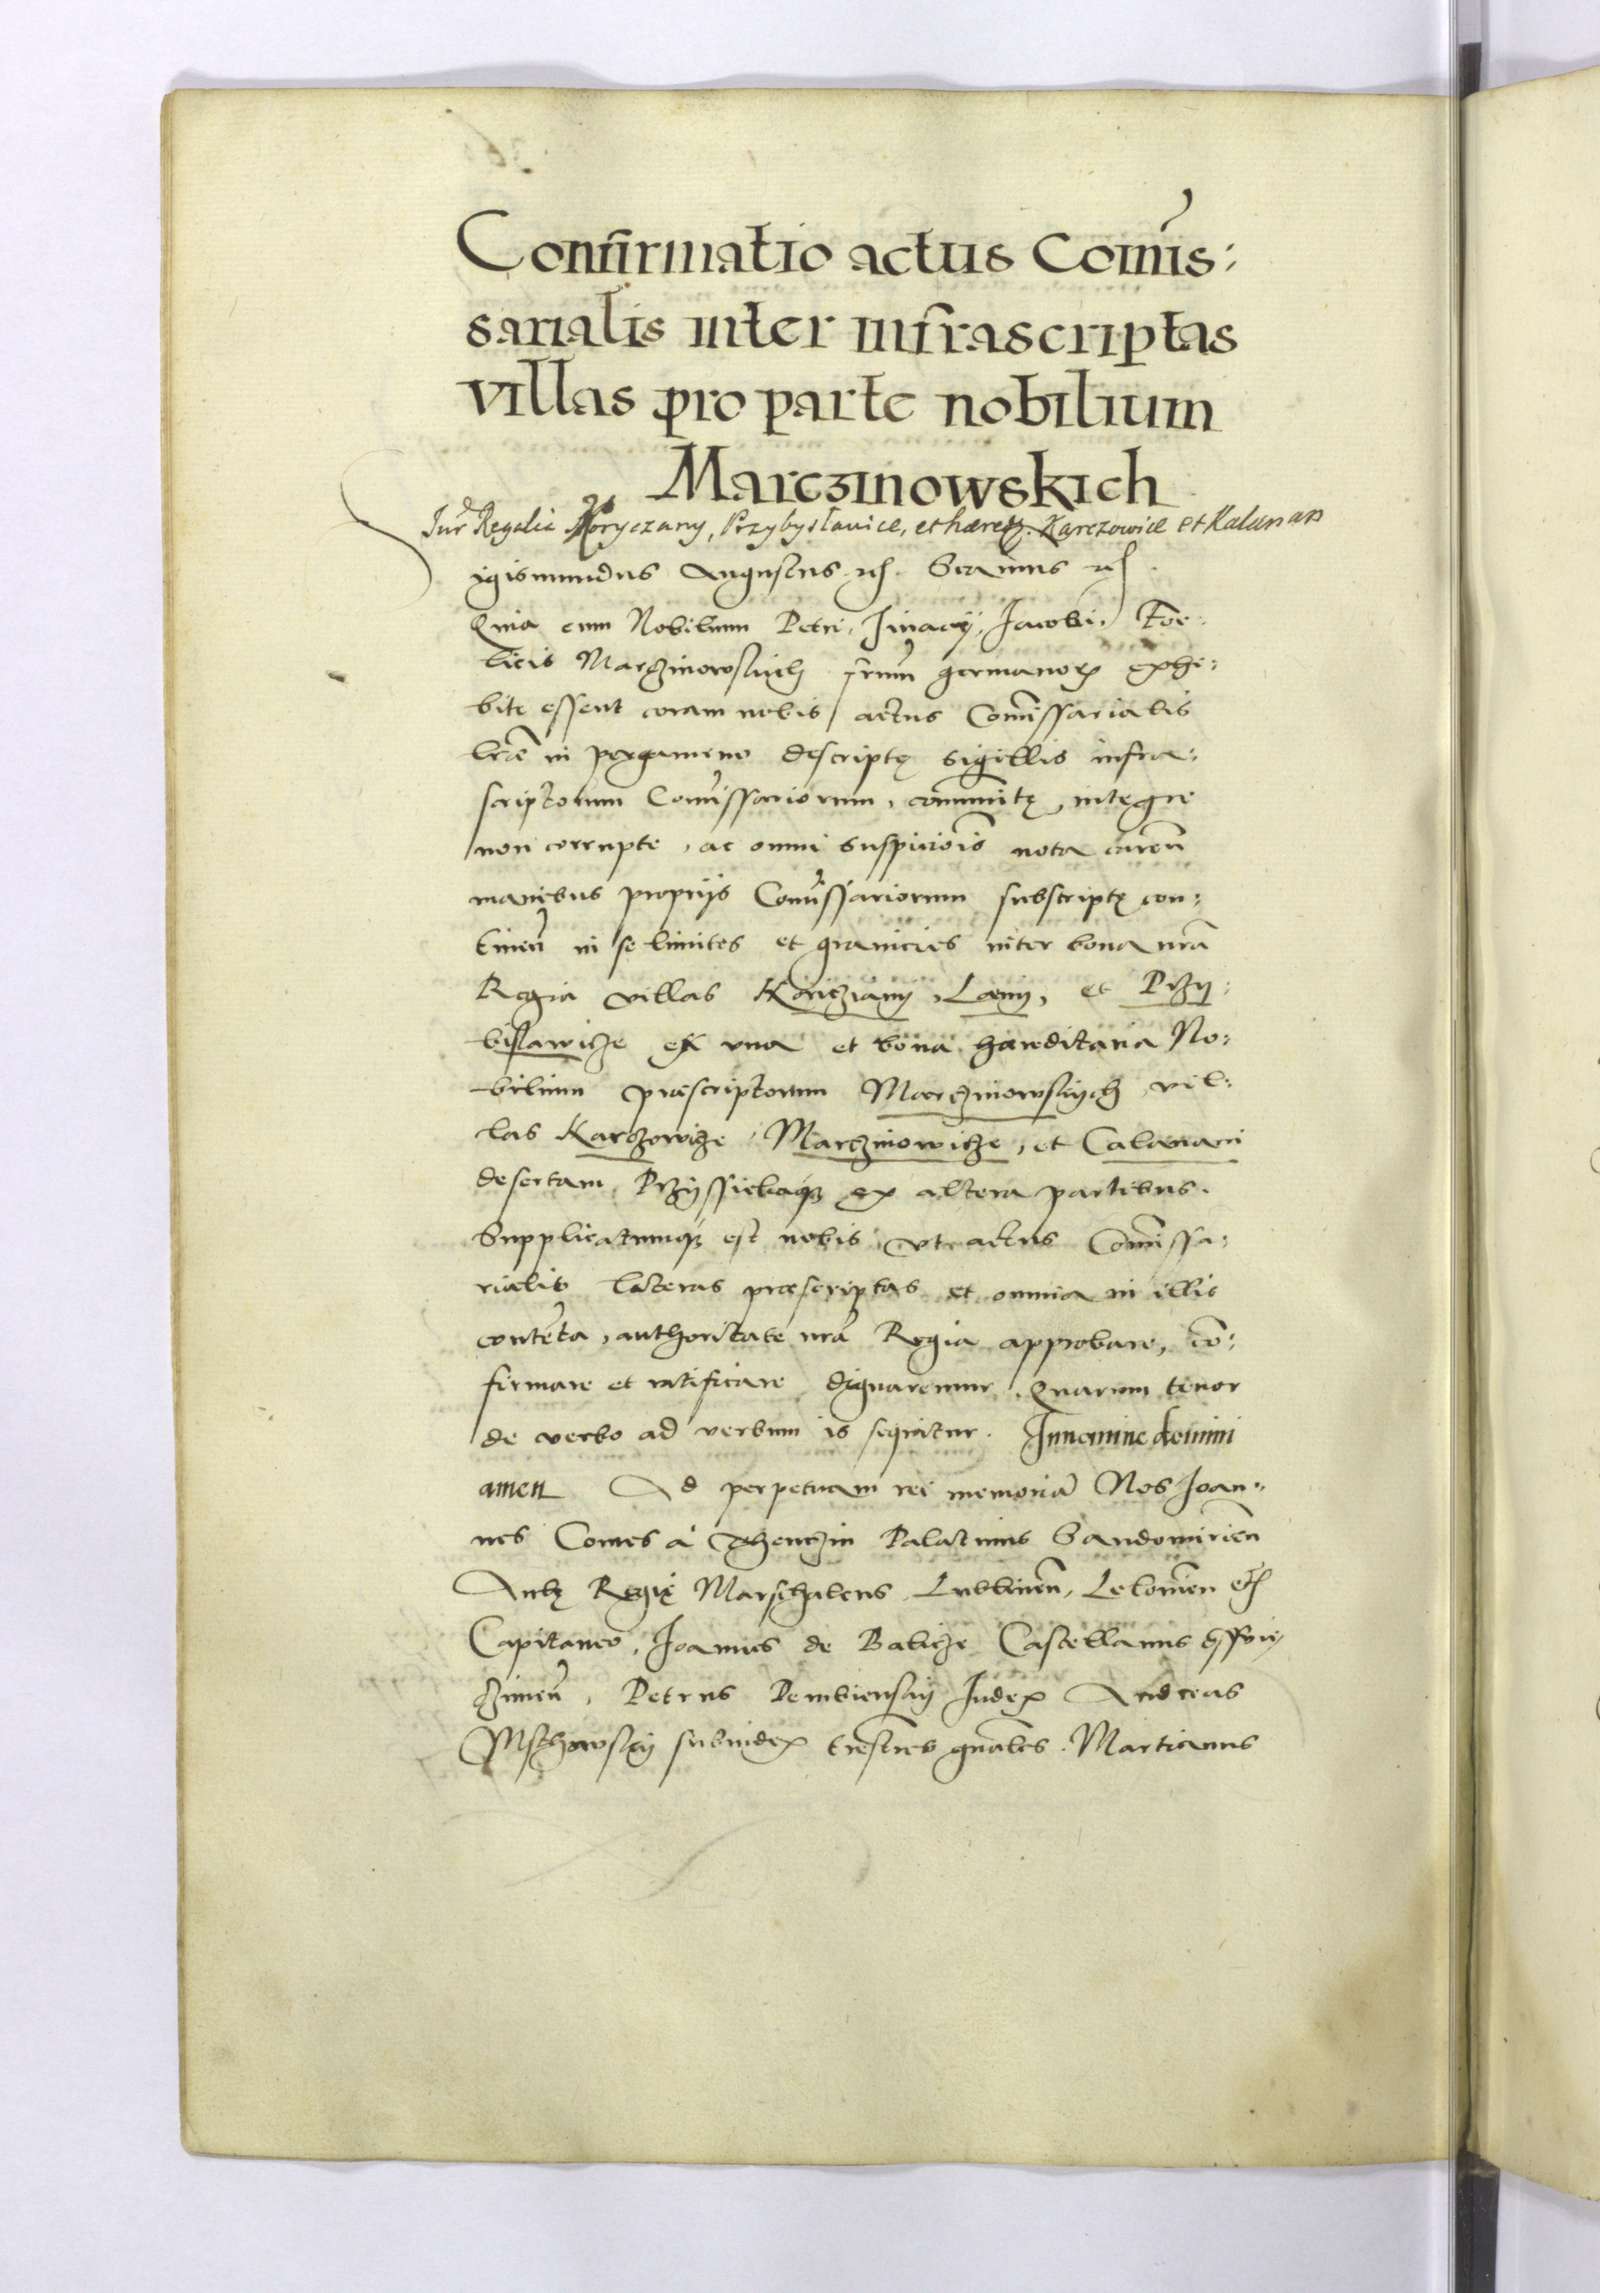 Confirmatio actus Comis:
sarialis inter infrascriptas
villas pro parte nobilium
Marczinowskich
Regalia Koryczany, Przybysławice, et haered. Karczowice et Kalanan
igismundus Augustus etc.
Quia cum Nobilium Petri, Jacobi, Foe:
licis Marczinowskich frum germanorum exhi:
bite essent coram nobis actus Comissarialis
lrae in pergameno descriptę sigillis infra:
scriptorum Comissariorum, communitę, integre
non corrupte, ac omni suspitiois nota caren
manibus propriis Comissariorum subscriptę con:
tinen in se limites et granicies inter bona nra
Regia villas Koricziany, Lany, et Przy:
bislawicze ex una et bona haereditaria No:
bilium praescriptorum Marczinowskych vil:
las Karczowicze, Marczinowicze, et Calanani
desertam, ex altera partibus.
Supplicatumq est nobis ut actus Comissa:
rialis literas praescriptas et omnia in illis
contenta, authoritate nra Regia approbare, co:
firmare et ratificare dignaremur. Quarum tenor
de verbo ad verbum is sequitur. In nomine domini
amen Ad perpetuam rei memoria Nos Joan:
nes Comes à Thenczin Palatinus Sandomirien
Aulę Regię Marschalcus Lublinen, Lelovien etc
Capitaneus, Joannes de Balicze Castellanus
Petrus Dembiensky Judex Andreas
Mschowsky subiudex trestres gnales. Martianus